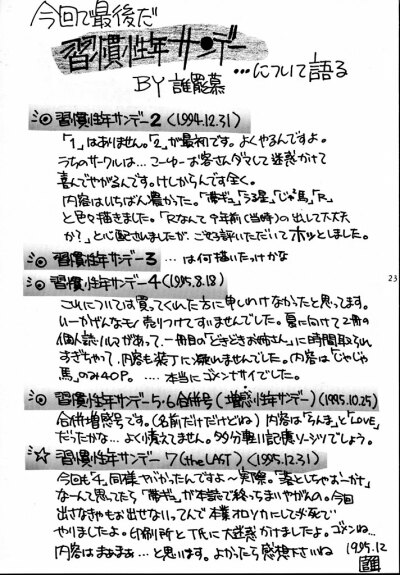 今回で最後だ
習慣性年サンデー
…について語る
BY 誰彼慕
◎ 習慣性年サンデー2 〈1994.12.31〉
「1」はありません。「2」が最初です。よくやるんですよ。
うちのサークルは…こーゆーお客さんダマして迷惑かけて
喜んでやがるんです。けしからんです全く。
内容はいちばん濃かった。「帯ギュ」「うる星」「じゃ馬」「R」
と色々描きました。「Rなんて 年前(当時)の出して大丈夫
か?」と心配されましたが、ご好評いただいてホッとしました。
◎ 習慣性年サンデー3 …は何描いたっけかな
◎ 習慣性年サンデー4 〈1995.8.18〉
これについては買ってくれた方に申しわけなかったと思ってます。
いーかげんなモン売りつけてすいませんでした。夏に向けて2冊の
個人誌 があって、一冊目の「 お姉さん」に時間取られ
すぎちゃって、内容も装丁に凝れませんでした。内容は「じゃじゃ
馬」のみ40P。…本当にゴメンナサイでした。
◎ 習慣性年サンデー5・6合併号(増感性年サンデー)〈1995.10.25〉
合併増感号です。(名前だけだけどね) 内容は「らんま」と「LOVE」
だったかな…よく憶えてません。多分軽い記憶ソーシツでしょう。
☆ 習慣性年サンデー7 (the LAST) 〈1995.12.31〉
今回も「4」同様ヤバかったんですよ〜実際。「落としちゃおーか」
なーんて思ってたら「帯ギュ」が本誌で終っちまいやがんの。今回
出さなきゃもお出せないってんで本業オロソカにして必死で
やりましたよ。印刷所とT氏に大迷惑かけましたよ。ゴメンね…
内容はまぁまぁ…と思います。よかったら感想下さいね
1995.12
23